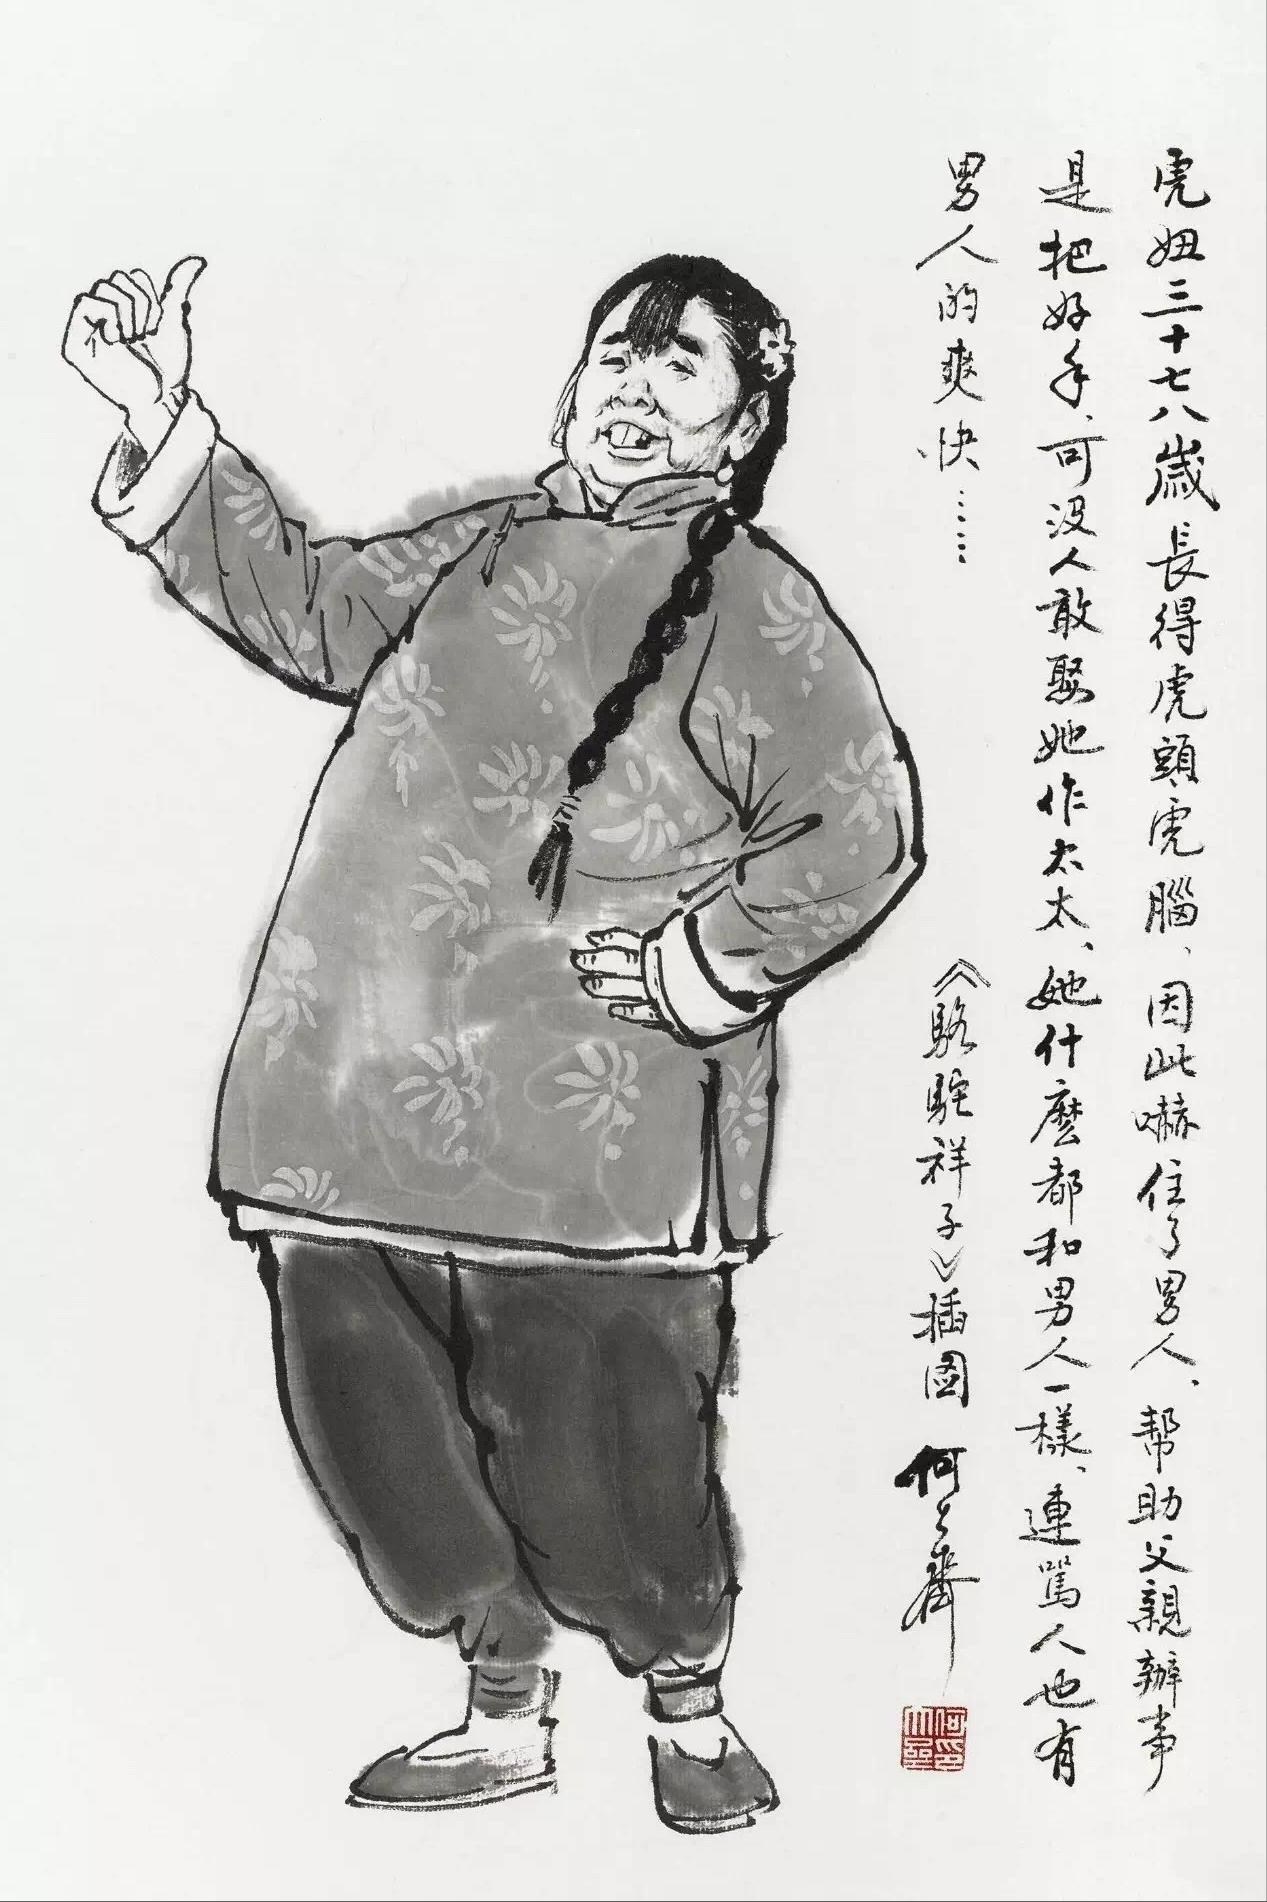 虎妞三十七八歲長得虎頭虎腦、因此嚇住了男人、幫助父親辦事
是把好手、可没人敢娶她作太太、她什麽都和男人一樣、連駡人也有
男人的爽快……
《駱駝祥子》插图 何大齊